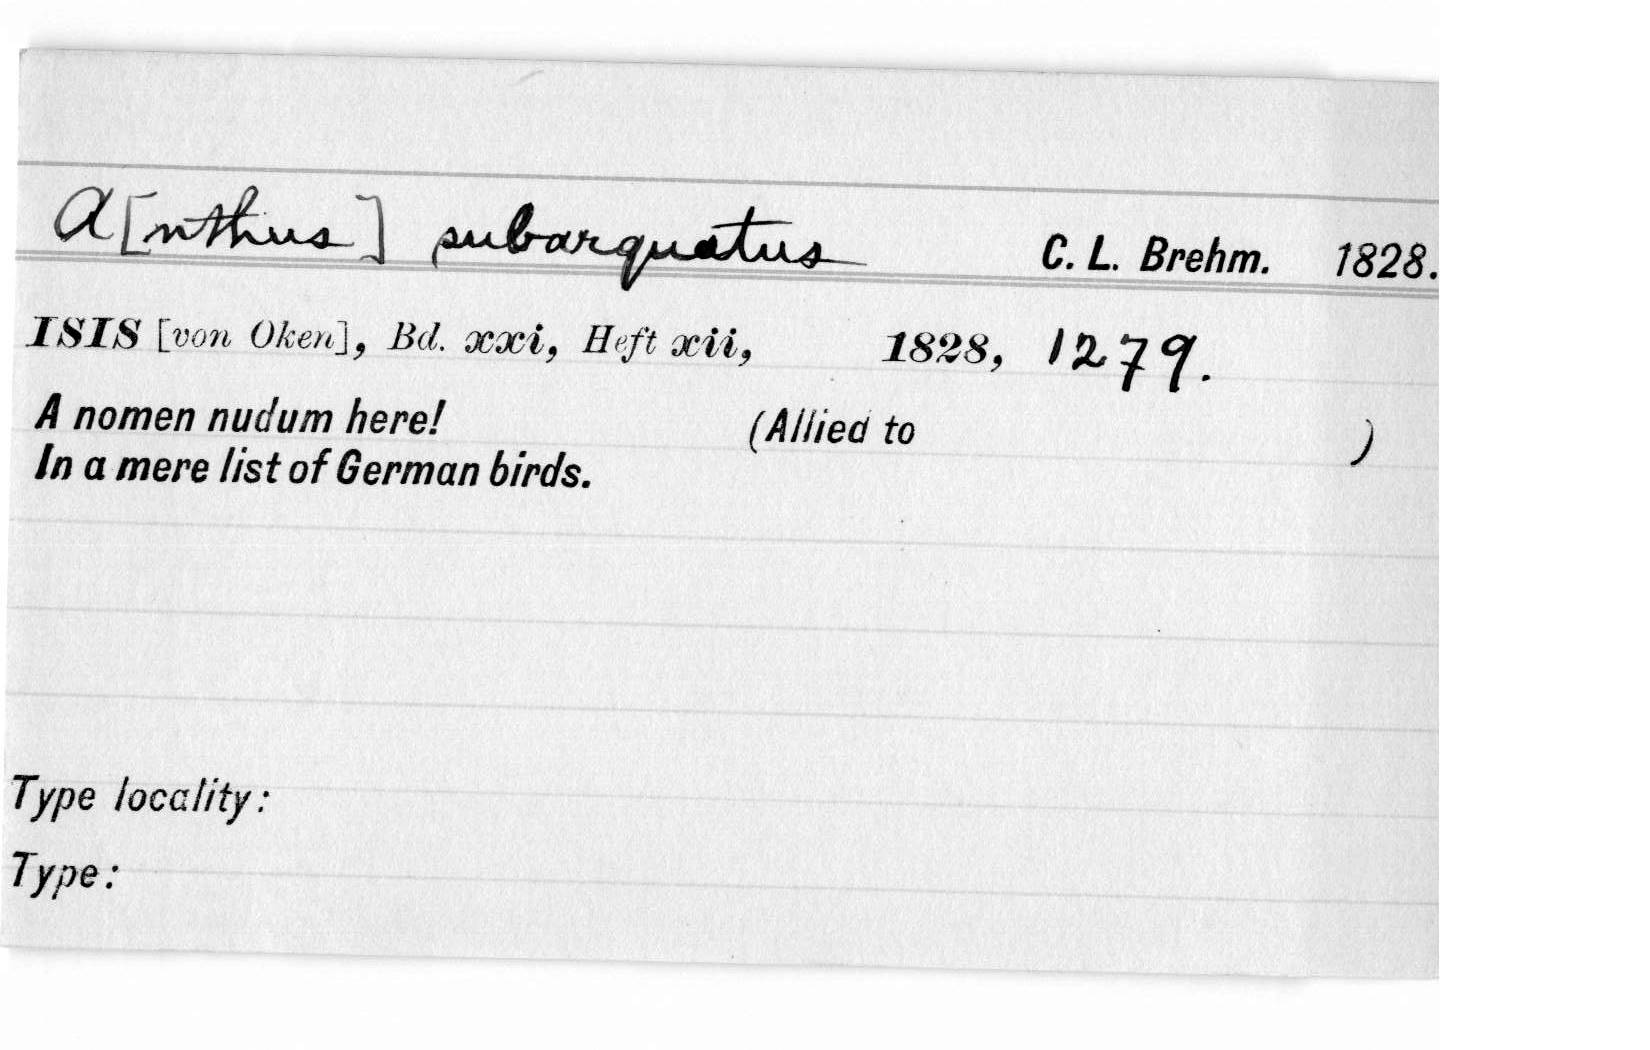 A[nthus] subarquatus C. L. Brehm. 1828.
ISIS [von Oken], Bd. xxi, Heft xii, 1828, 1279.
A nomen nudum here! (Allied to )
In a mere list of German birds.
Type locality:
Type: